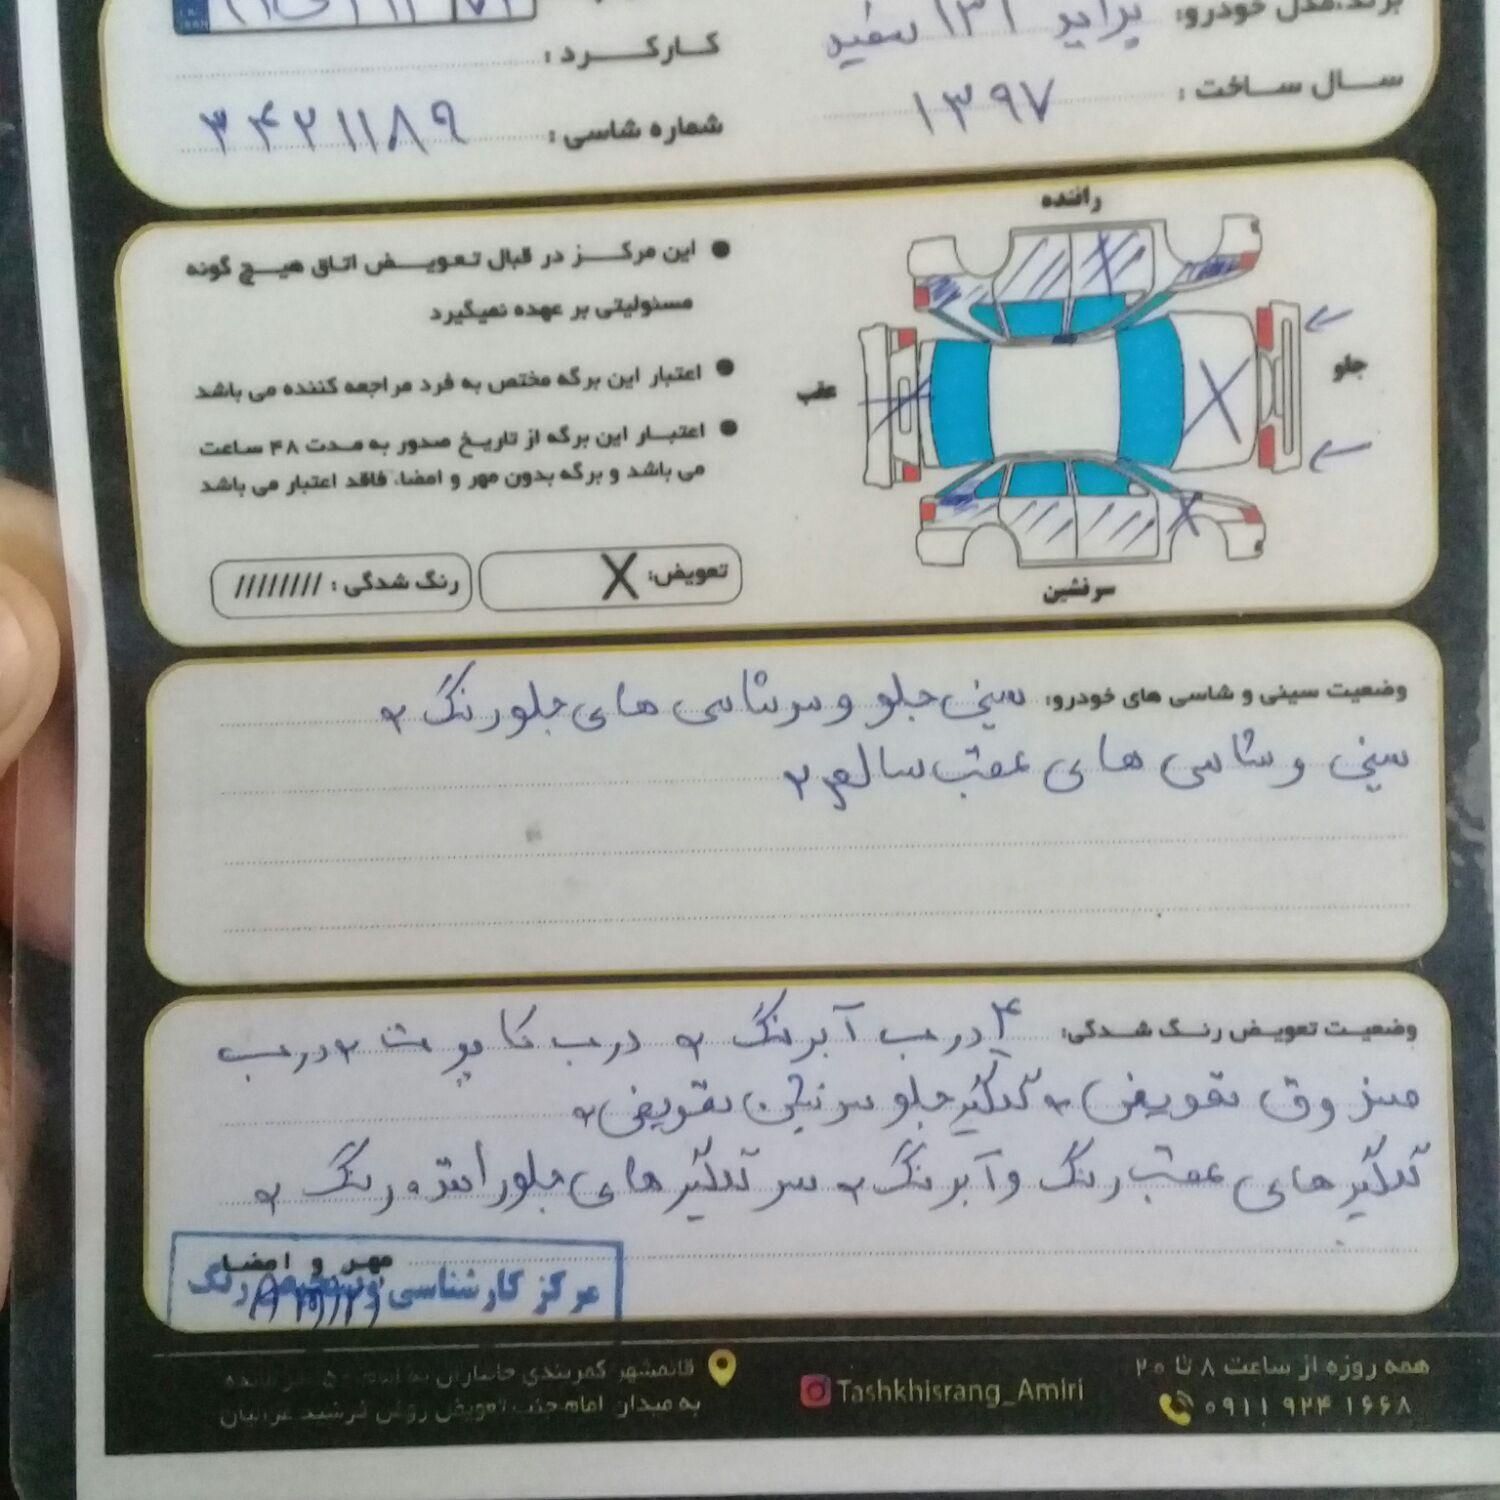 برند،مدل خودرو: پراید ۱۳۱ سفید
سال ساخت: ۱۳۹۷
کارکرد:
شماره شاسی: ۳۴۲۱۱۸۹
راننده
جلو
عقب
سرنشین
این مرکز در قبال تعویض اتاق هیچ گونه
مسئولیتی بر عهده نمیگیرد
اعتبار این برگه مختص به فرد مراجعه کننده می باشد
اعتبار این برگه از تاریخ صدور به مدت ۴۸ ساعت
می باشد و برگه بدون مهر و امضاء فاقد اعتبار می باشد
تعویض: X
رنگ شدگی: ////////
وضعیت سینی و شاسی های خودرو: سینی جلو و سرشاسی های جلو رنگ
سینی و شاسی های عقب سالم
وضعیت تعویض رنگ شدگی: ۴ درب آبرنگ درب کاپوت درب
صندوق تعویض گلگیر جلو سرنشین تعویض
گلگیر های عقب رنگ و آبرنگ سر گلگیر های جلو راننده رنگ
مهر و امضا
مرکز کارشناسی و تشخیص رنگ
همه روزه از ساعت ۸ تا ۲۰
۰۹۱۱ ۹۲۴ ۱۶۶۸
Tashkhisrang_Amiri
قائمشهر کمربندی
به میدان امام جنب تعویض روغن